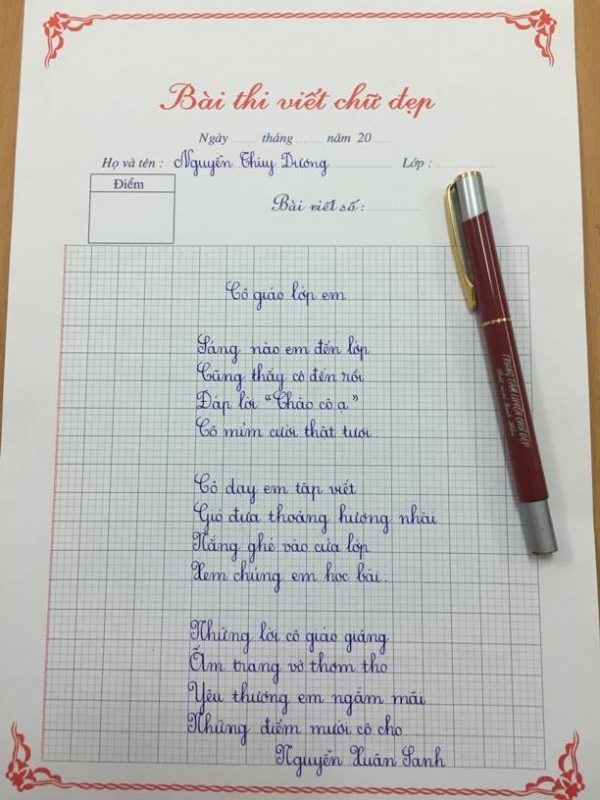 Bài thi viết chữ đẹp
Ngày ........ tháng ........ năm 20 ......
Họ và tên : Nguyễn Thùy Dương Lớp :
Điểm
Bài viết số :
Cô giáo lớp em
Sáng nào em đến lớp
Cũng thấy cô đến rồi
Đáp lời "Chào cô ạ"
Cô mỉm cười thật tươi.
Cô dạy em tập viết
Gió đưa thoảng hương nhài
Nắng ghé vào cửa lớp
Xem chúng em học bài.
Những lời cô giáo giảng
Ấm trang vở thơm tho
Yêu thương em ngắm mãi
Những điểm mười cô cho
Nguyễn Xuân Sanh
TRUNG TÂM LUYỆN CHỮ ĐẸP